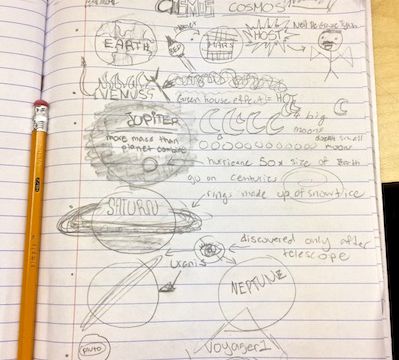 COSMOS
EARTH
RED
MARS
HOST
VENUS
Green house effect = HOT
JUPITER
more mass than
planet combine
4 big
moons
small
moon
hurricane 50x size of Earth
go on centuries
SATURN
rings made up of snow+ice
discovered only after
telescope
Uranis
NEPTUNE
Voyager 1
Pluto